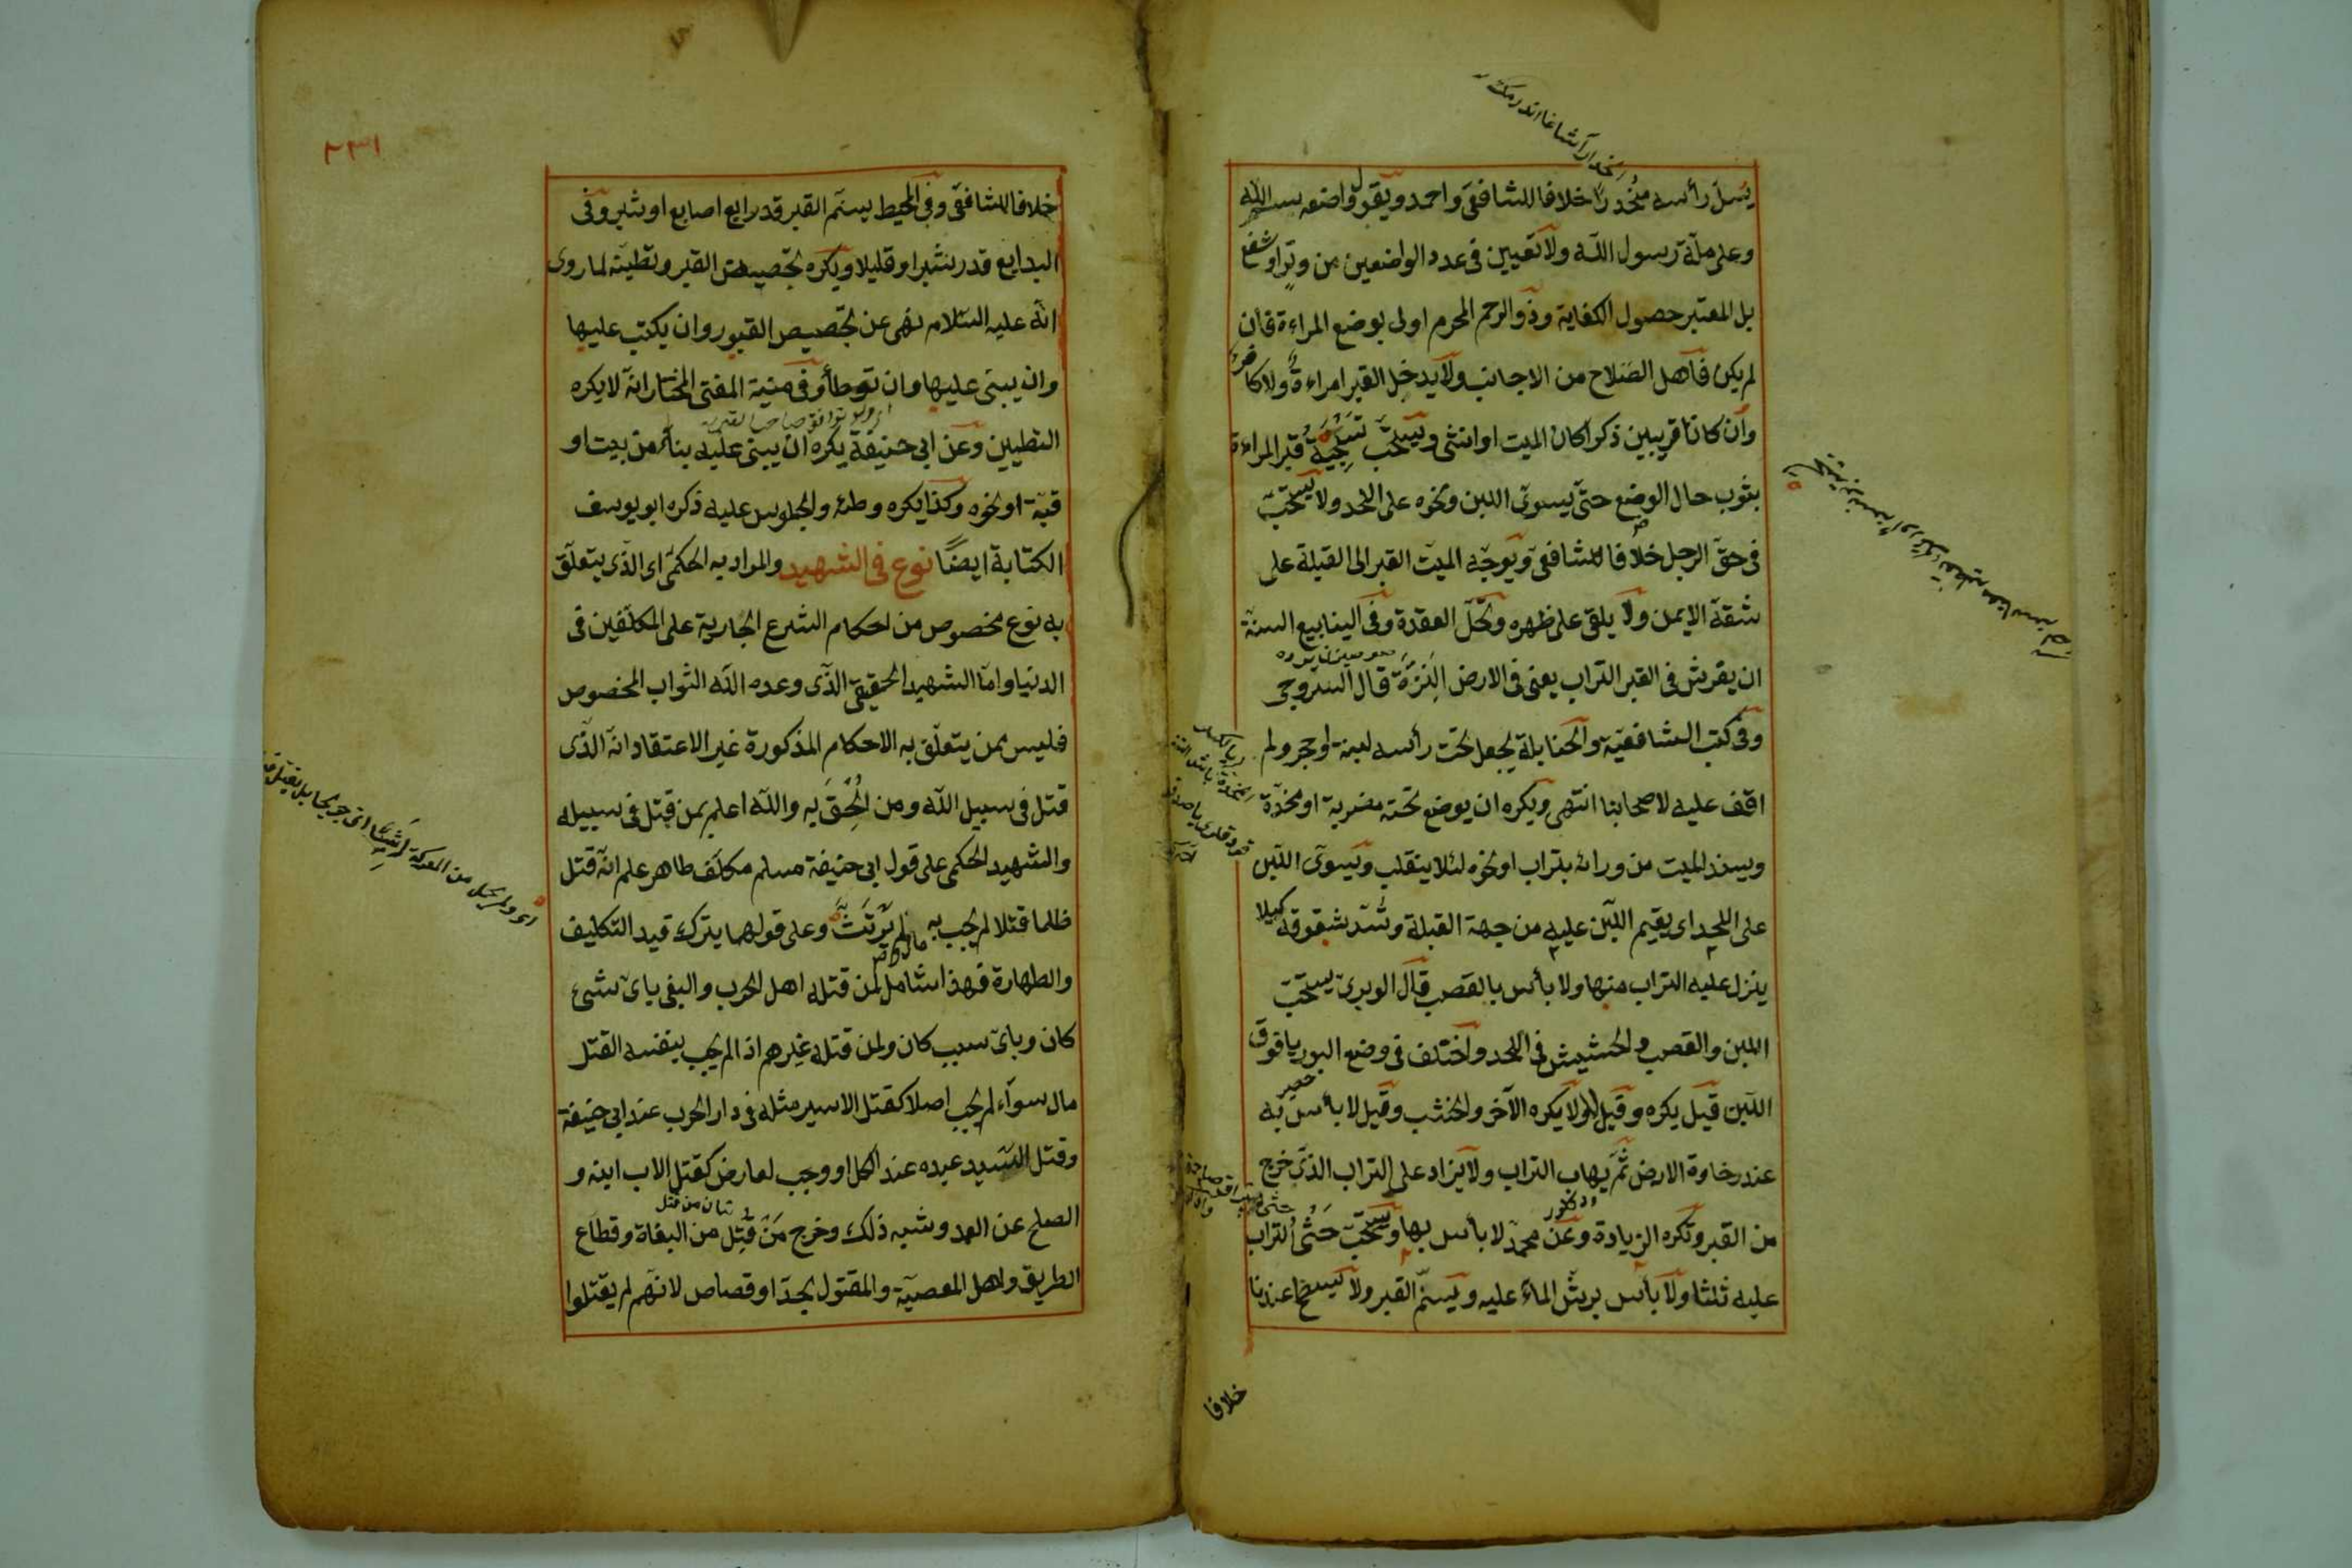 يسل رأسه منحدرا خلافا للشافعى واحمد ويقول واضعه بسم الله
وعلى ملة رسول الله ولا تعيين فى عدد الواضعين من وتر او شفع
بل المعتبر حصول الكفاية وذو الرحم المحرم اولى بوضع المراءة فان
لم يكن فاهل الصلاح من الاجانب ولا يدخل القبر امراءة ولا كافر
وان كانا قريبين ذكرا كان الميت او انثى ويستحب تسجية قبر المراءة
بثوب حال الوضع حتى يسوى اللبن ونحوه على اللحد ولا يستحب
فى حق الرجل خلافا للشافعى ويوجه الميت القبر الى القبلة على
شقه الايمن ولا يلقى على ظهره وتحل العقدة وفى الينابيع السنة
ان يفرش فى القبر التراب يعنى فى الارض النزة قال السروجى
وفى كتب الشافعية والحنابلة يجعل تحت رأسه لبنة او حجر ولم
اقف عليه لاصحابنا انتهى ويكره ان يوضع تحته مضربة او مخدة
ويسند الميت من ورائه بتراب او نحوه لئلا ينقلب ويسوى اللبن
على اللحد اى يقيم اللبن عليه من جهة القبلة وتسد شقوقه كيلا
ينزل عليه التراب منها ولا بأس بالقصب قال الوبرى يستحب
اللبن والقصب والحشيش فى اللحد واختلف فى وضع البوريا فوق
اللبن قيل يكره وقيل لا ولا يكره الآجر والخشب وقيل لا بأس به
عند رخاوة الارض ثم يهاب التراب ولا يزاد على التراب الذى خرج
من القبر وتكره الزيادة وعن محمد لا بأس بها ويستحب حثى التراب
عليه ثلثا ولا بأس برش الماء عليه ويسنم القبر ولا يسطح عندنا
خلافا
٢٣١
خلافا للشافعى وفى المحيط يسنم القبر قدر اربع اصابع او شبر وفى
البدايع قدر شبر او قليلا ويكره تجصيص القبر وتطيينه لما روى
انه عليه السلام نهى عن تجصيص القبور وان يكتب عليها
وان يبنى عليها وان توطأ وفى منية المفتى المختار انه لا يكره
التطيين وعن ابى حنيفة يكره ان يبنى عليه بناء من بيت او
قبة او نحوه وكذا يكره وطئه والجلوس عليه ذكره ابو يوسف
الكتابة ايضا نوع فى الشهيد والمراد به الحكمى اى الذى يتعلق
به نوع مخصوص من احكام الشرع الجارية على المكلفين فى
الدنيا واما الشهيد الحقيقى الذى وعده الله الثواب المخصوص
فليس ممن يتعلق به الاحكام المذكورة غير الاعتقاد انه الذى
قتل فى سبيل الله ومن الحق به والله اعلم بمن قتل فى سبيله
والشهيد الحكمى على قول ابى حنيفة مسلم مكلف طاهر علم انه قتل
ظلما قتلا لم يجب به مال ولم يرتث وعلى قولهما يترك قيد التكليف
والطهارة فهذا شامل لمن قتله اهل الحرب والبغى باى شئ
كان وباى سبب كان ولمن قتله غيرهم اذا لم يجب بنفسه القتل
مال سواء لم يجب اصلا كقتل الاسير مثله فى دار الحرب عند ابى حنيفة
وقتل السيد عبده عند الكل او وجب لعارض كقتل الاب ابنه و
الصلح عن العمد وشبه ذلك وخرج من قتل من البغاة وقطاع
الطريق واهل المعصية والمقتول بحد او قصاص لانهم لم يقتلوا